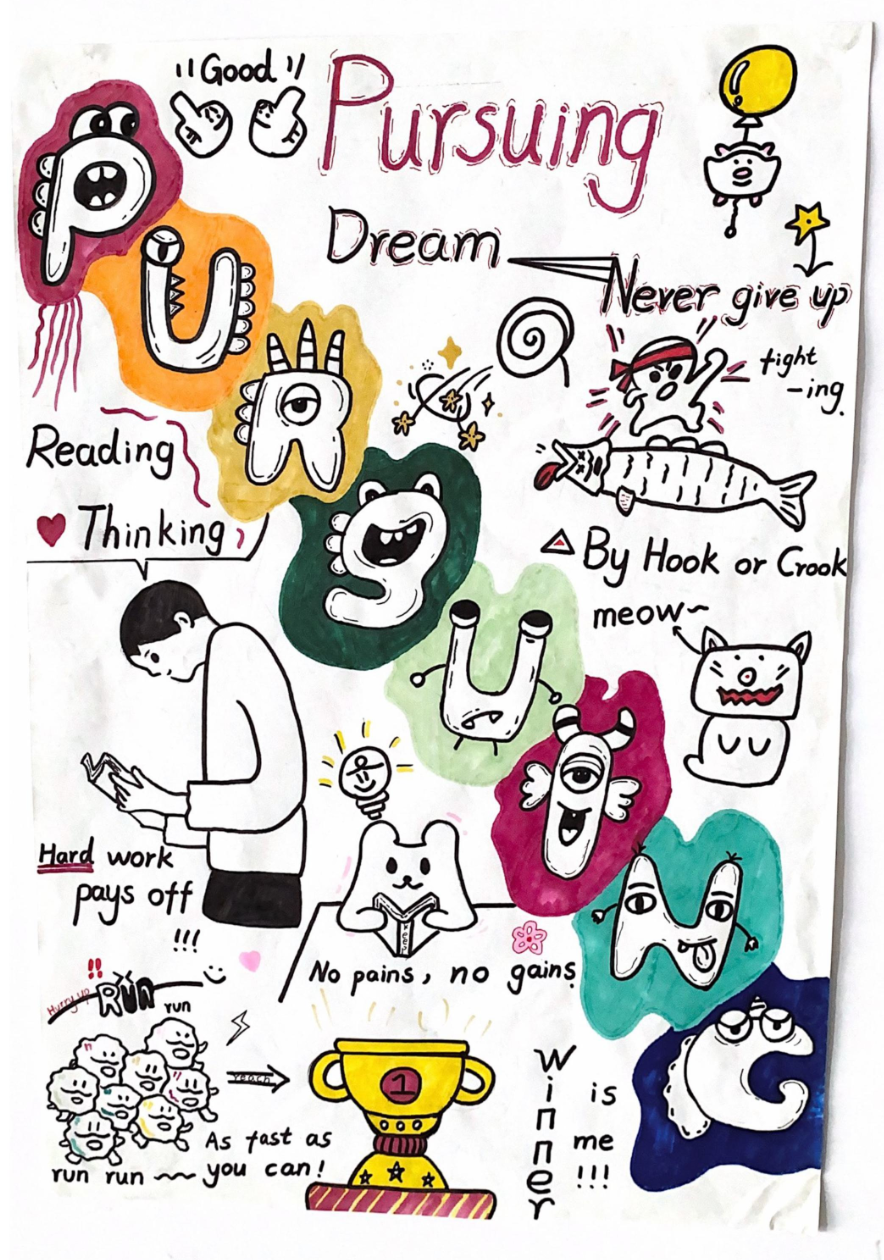 "Good"
Pursuing
Dream
Never give up
fight
-ing.
PURSUING
Reading
Thinking
By Hook or Crook
meow~
Hard work
pays off
!!!
No pains, no gains
!!
Hurry up RUN
run
reach
1
As fast as
you can!
run run
Winner
is
me
!!!